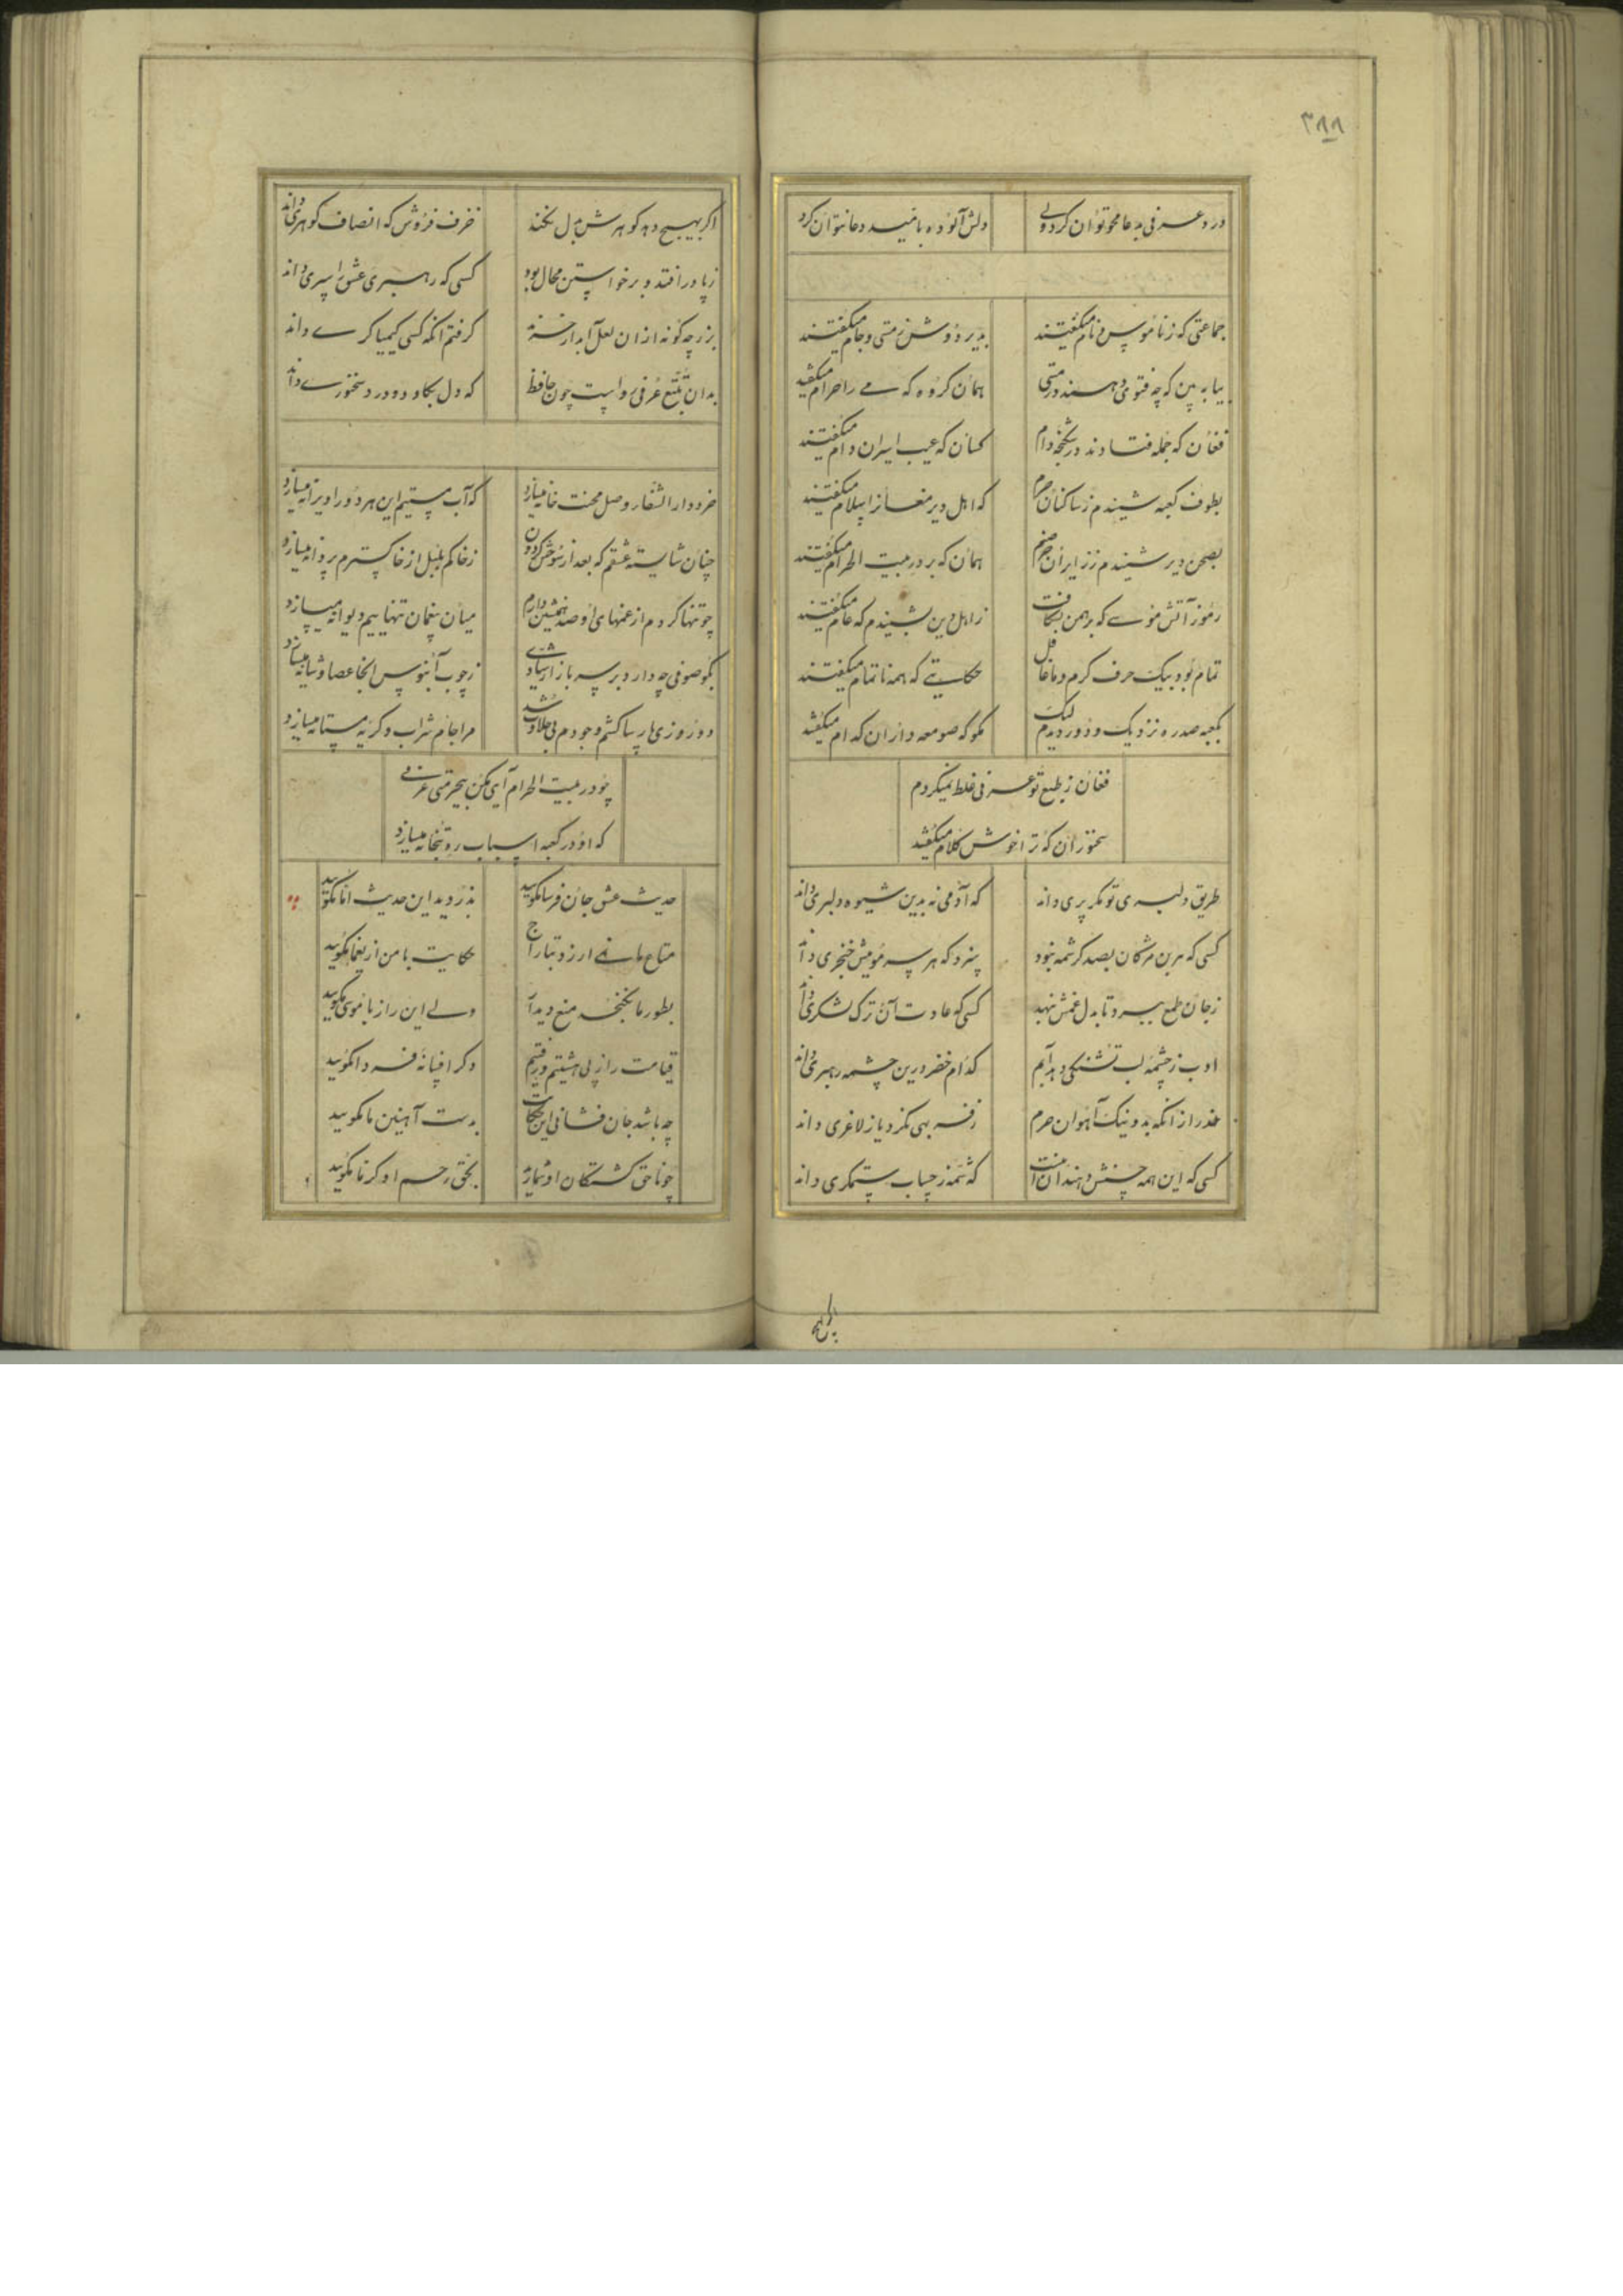 ۳۸۸
درد عرفی به دعا محو توان کرد ولی
دلش آلوده بامید دعا نتوان کرد
جماعتی که ز ناموس و نام میگفتند
بدیر دوش ز مستی و جام میگفتند
بیا ببین که چه فتوی دهند در مستی
همان گروه که می را حرام میگفتند
فغان که جمله فتادند در شکنجه دام
کسان که عیب اسیران دام میگفتند
بطوف کعبه شنیدم ز ساکنان حرم
که اهل دیر مغان از اسلام میگفتند
بصحن دیر شنیدم ز زایران صنم
همان که بر در بیت الحرام میگفتند
رموز آتش موسی که برهمن بشکافت
ز اهل دین بشنیدم که عام میگفتند
تمام بود بیک حرف گرم و ما غافل
حکایتی که همه ناتمام میگفتند
بکعبه صد ره نزدیک و دور دیدم لیک
مگو که صومعه داران کدام میگفتند
فغان ز طبع تو عرفی غلط نمیکردم
سخنوران که ترا خوش کلام میگفتند
طریق دلبری تو مگر پری داند
که آدمی نه بدین شیوه دلبری داند
کسی که هر بن مژگان بصد کرشمه نبود
سزد که هر سر مویش خنجری داند
ز جان طمع ببرد تا بدل غمش ننهد
کسی که عادت آن ترک لشکری داند
ادب ز چشمه لب تشنگی دهد آبم
کدام خضر درین چشمه رهبری داند
حذر از آنکه بد و نیک آهوان حرم
ز فربهی نگرد یا ز لاغری داند
کسی که این همه جنبش دهند آن منت
که شمه ز حساب ستمگری داند
اگر بهیچ دهد گوهرش بدل نکند
خزف فروش که انصاف گوهری داند
ز پا در افتد و برخواستن محال بود
کسی که رهبری عشق را سری داند
بزر چگونه از آن لعل آبدار خرند
گرفتم آنکه کسی کیمیاگری داند
بدان تتبع عرفی رواست چون حافظ
که دل بکاود و درد سخنوری داند
خرد دار الشفا وصل محنت خانه میسازد
که آب مستیم این هر دو را ویرانه میسازد
چنان شایسته عشقم که بعد از سوختن گردون
ز خاکم بلبل از خاکسترم پروانه میسازد
چو تنها کردم از غمهای او صد همنشین دارم
میان همچنان تنهاییم دیوانه میسازد
بگو صوفی چه دارد بر سر بازار شیادی
ز چوب آبنوس اینجا عصا و شانه میسازد
دو روزی پارسا گشتم وجودم بی حلاوت شد
مرا جام شراب و گریه مستانه میسازد
چو در بیت الحرام آیی مکن بیحرمتی عرفی
که او در کعبه اسباب ره بتخانه میسازد
حدیث عشق جان فرسا مگویید
بدزدید این حدیث اما مگویید
متاع ما نمی ارزد بتاراج
حکایت با من از یغما مگویید
بطور ما نگنجد منع دیدار
ولی این راز با موسی مگویید
قیامت را ز پی هشتیم و رفتیم
دگر افسانه فردا مگویید
چه باشد جان فشانی این حکایت
بدست آهنین ما مگویید
چو ناحق کشتگان او شمارند
بحق رحم او کز ما مگویید